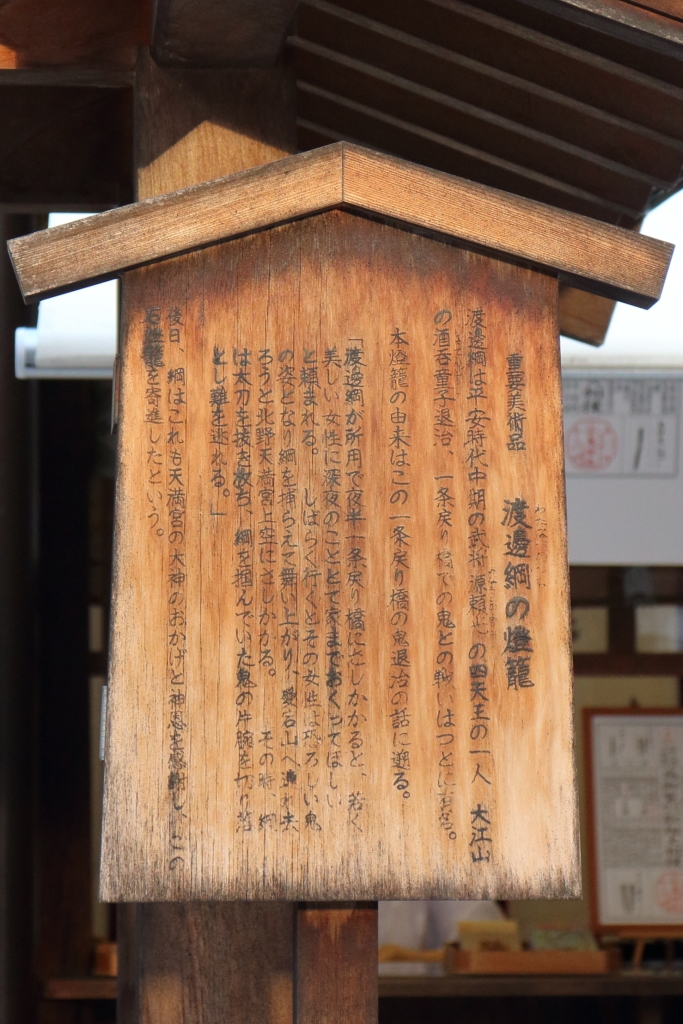 重要美術品　渡邊綱の燈籠
渡邊綱は平安時代中期の武将源頼光の四天王の一人　大江山
の酒呑童子退治、一条戻り橋での鬼との戦いはつとに有名。
本燈籠の由来はこの一条戻り橋の鬼退治の話に遡る。
「渡邊綱が所用で夜半一条戻り橋にさしかかると、若く
美しい女性に深夜のこととて家までおくってほしい
と頼まれる。　しばらく行くとその女性は恐ろしい鬼
の姿となり綱を捕らえて舞い上がり、愛宕山へ連れ去
ろうと北野天満宮上空にさしかかる。　その時、綱
は太刀を抜き放ち、綱を掴んでいた鬼の片腕を切り落
とし難を逃れる。」
後日、綱はこれも天満宮の大神のおかげと神恩を感謝し、この
石燈籠を寄進したという。